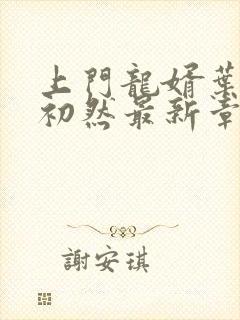 上門龍婿葉
初然最新章
謝安琪